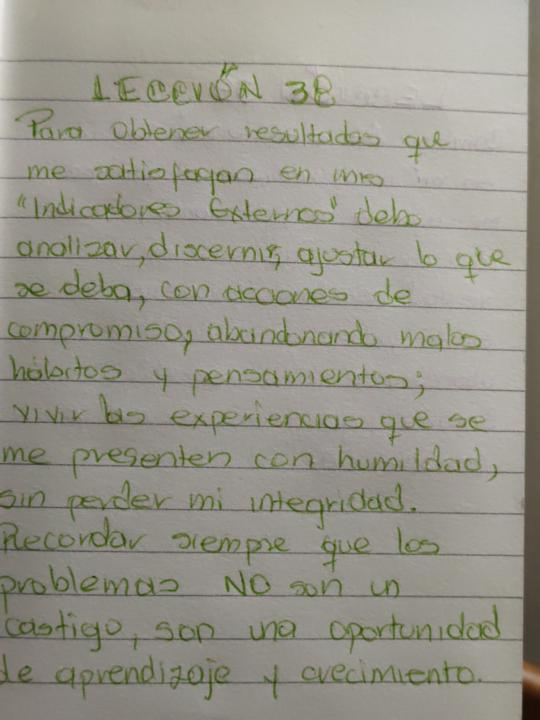 LECCIÓN 38
Para obtener resultados que
me satisfagan en mis
"Indicadores Externos" debo
analizar, discernir, ajustar lo que
se deba, con acciones de
compromiso, abandonando malos
hábitos y pensamientos;
vivir las experiencias que se
me presenten con humildad,
sin perder mi integridad.
Recordar siempre que los
problemas NO son un
castigo, son una oportunidad
de aprendizaje y crecimiento.